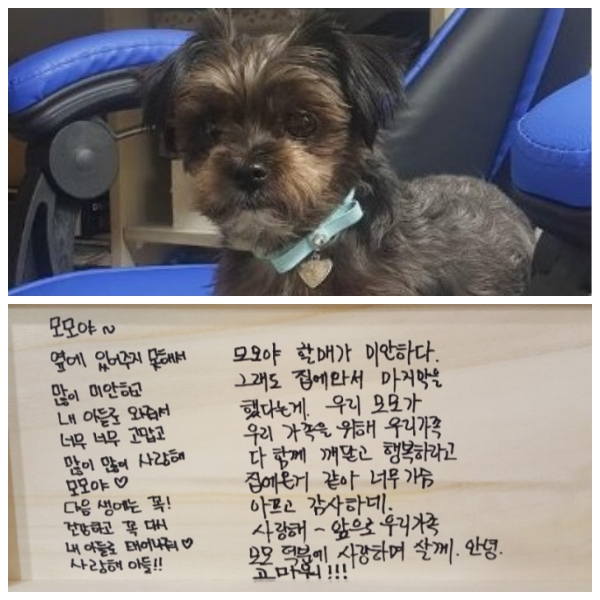 모모야~
옆에 있어주지 못해서
많이 미안하고
내 아들로 와줘서
너무 너무 고맙고
많이 많이 사랑해
모모야♡
다음 생에는 꼭!
건강하고 꼭 다시
내 아들로 태어나줘♡
사랑해 아들!!
모모야 할매가 미안하다.
그래도 집에와서 마지막을
했다는게. 우리 모모가
우리 가족을 위해 우리가족
다 함께 깨닫고 행복하라고
집에온거 같아 너무 가슴
아프고 감사하데.
사랑해~ 앞으로 우리가족
모모 덕분에 사랑하며 살께. 안녕.